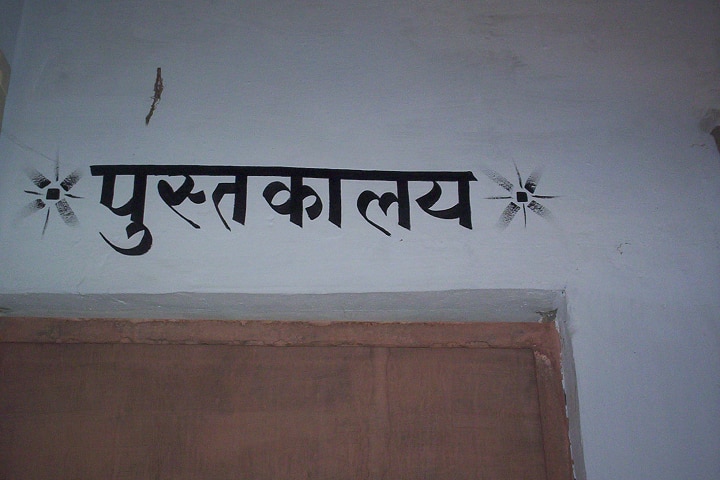 पुस्तकालय